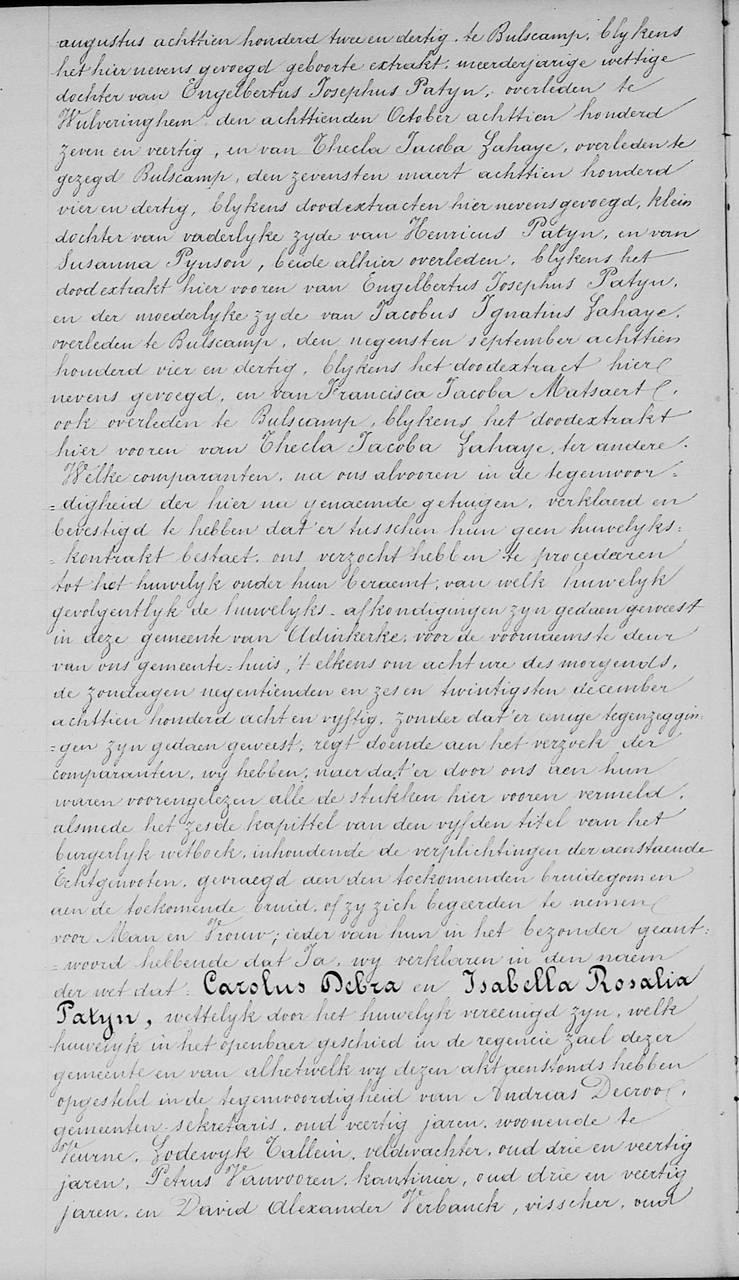 augustus achttien honderd twee en dertig, te Bulscamp, blykens
het hier nevens gevoegd geboorte extrakt, meerderjarige wettige
dochter van Engelbertus Josephus Patyn, overleden te
Wulveringhem den achttienden October achttien honderd
zeven en veertig, en van Thecla Jacoba Lahaye, overleden te
gezegd Bulscamp, den zevensten maert achttien honderd
vier en dertig, blykens doodextracten hier nevensgevoegd, klein
dochter van vaderlyke zyde van Henricus Patyn, en van
Susanna Pynson, beide alhier overleden, blykens het
doodextrakt hier vooren van Engelbertus Josephus Patyn,
en der moederlyke zyde van Jacobus Ignatius Lahaye,
overleden te Bulscamp, den negensten september achttien
honderd vier en dertig, blykens het doodextract hier
nevens gevoegd, en van Francisca Jacoba Matsaert,
ook overleden te Bulscamp, blykens het doodextrakt
hier vooren van Thecla Jacoba Lahaye, ter andere.
Welke comparanten, na ons alvooren in de tegenwoor=
=digheid der hier na genaemde getuigen, verklaerd en
bevestigd te hebben dat er tusschen hun geen huwelyks=
=kontrakt bestaet, ons verzocht hebben te procederen
tot het huwelyk onder hun beraemt, van welk huwelyk
gevolgentlyk de huwelyks-afkondigingen zyn gedaen geweest
in deze gemeente van Adinkerke, voor de voornaemste deur
van ons gemeente=huis, 't elkens om acht ure des morgends,
de zondagen negentienden en zes en twintigsten december
achttien honderd acht en vyftig, zonder dat'er eenige tegenzeggin=
=gen zyn gedaen geweest, regt doende aen het verzoek der
comparanten, wy hebben, naer dat'er door ons aen hun
waren voorengelezen alle de stukken hier vooren vermeld,
alsmede het zesde kapittel van den vyfden titel van het
burgerlyk wetboek, inhoudende de verplichtingen der aenstaende
Echtgenooten, gevraegd aen den toekomenden bruidegom en
aen de toekomende bruid, of zy zich begeerden te nemen
voor Man en Vrouw; ieder van hun in het bezonder geant=
=woord hebbende dat Ja, wy verklaren in den naem
der wet dat: Carolus Debra en Isabella Rosalia
Patyn, wettelyk door het huwelyk vereenigd zyn, welk
huwelyk in het openbaer geschied in de regencie zael dezer
gemeente en van alhetwelk wy dezen akt aenstonds hebben
opgesteld in de tegenwoordigheid van Andreas Decroo,
gemeenten-sekretaris, oud veertig jaren, woonende te
Veurne, Lodewyk Tallein, veldwachter, oud drie en veertig
jaren, Petrus Vanvooren, kantinier, oud drie en veertig
jaren, en David Alexander Verbanck, visscher, oud